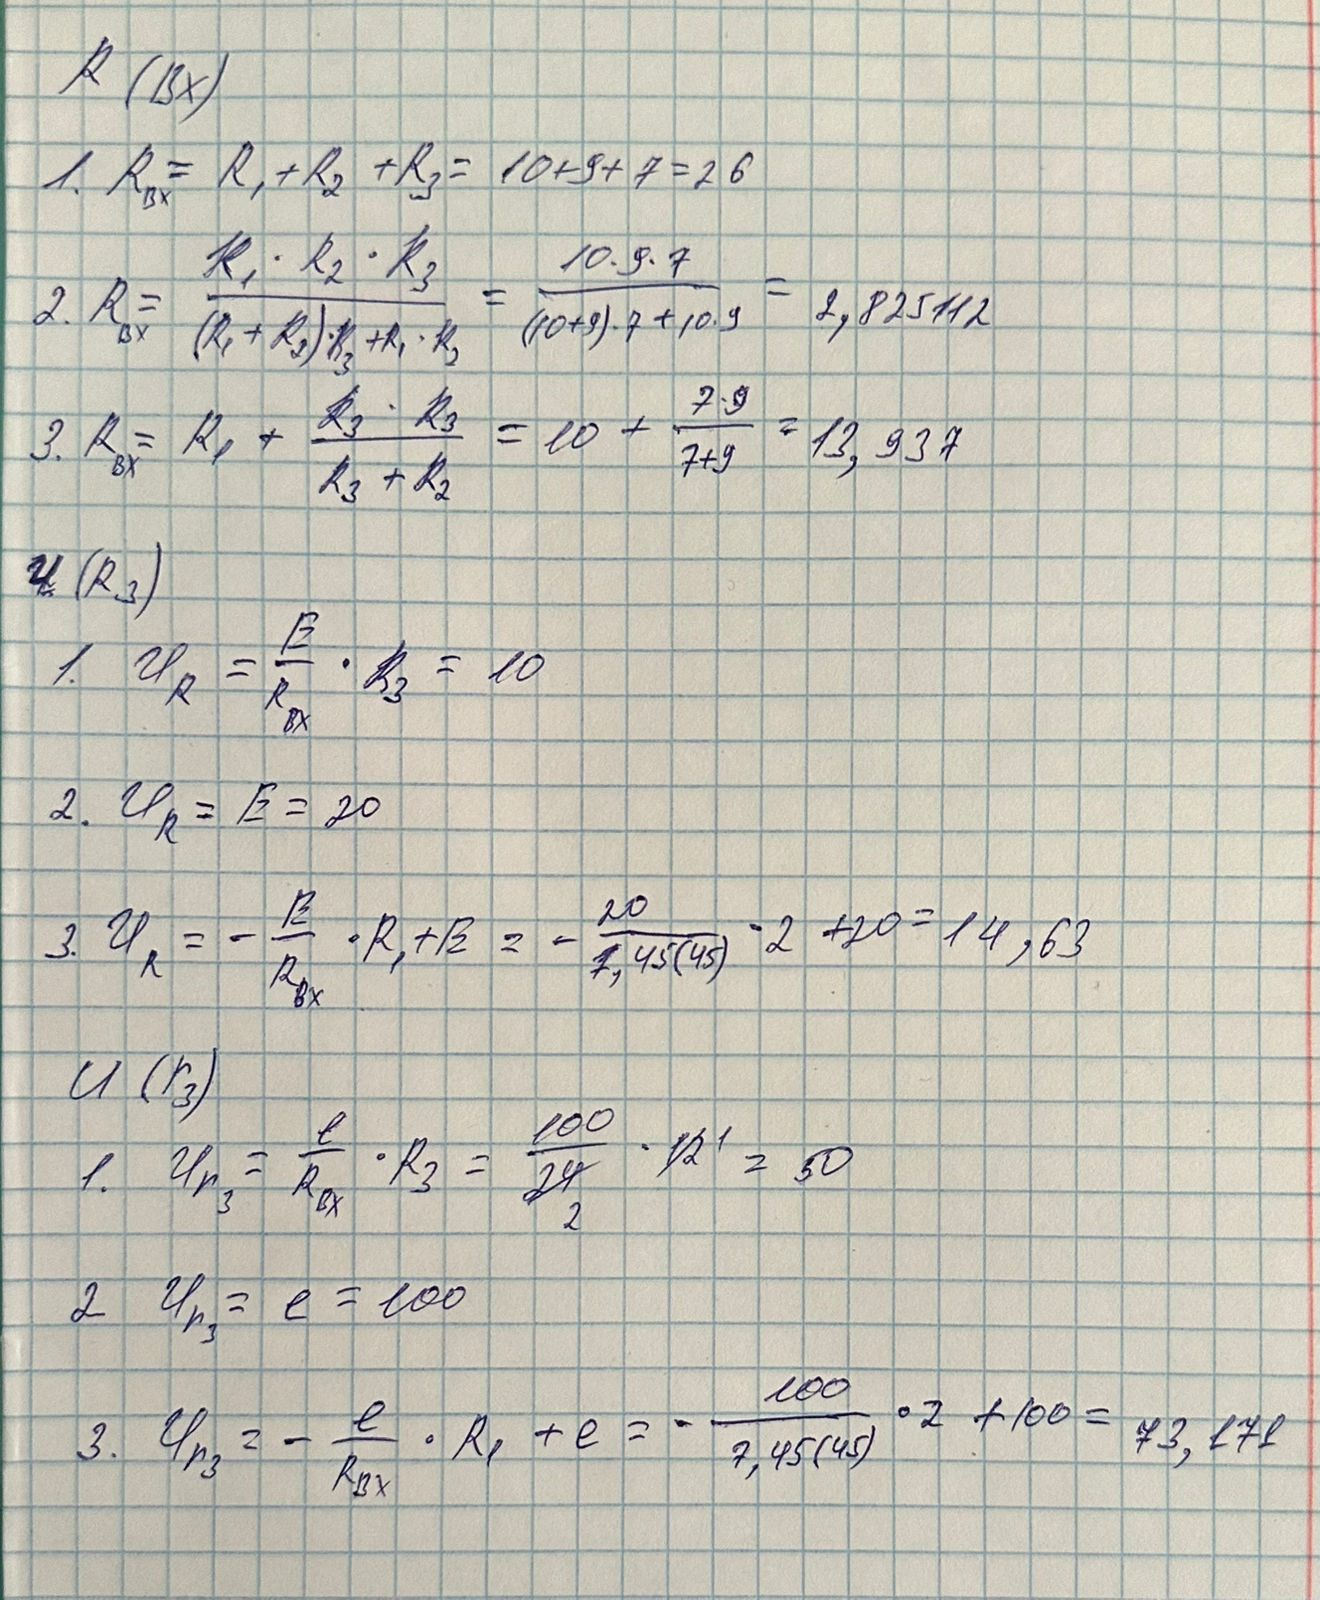 R (Вх)
1. Rвх = R1 + R2 + R3 = 10+9+7=26
2. Rвх = (R1 · R2 · R3) / ((R1 + R2)·R3 + R1 · R2) = (10·9·7) / ((10+9)·7+10·9) = 2,825112
3. Rвх = R1 + (R3 · R3) / (R3 + R2) = 10 + (7·9) / (7+9) = 13,937
U (R3)
1. UR = E / Rвх · R3 = 10
2. UR = E = 20
3. UR = - E / Rвх · R1 + E = - 20 / 7,45(45) · 2 + 20 = 14,63
U (r3)
1. Ur3 = e / Rвх · R3 = 100 / 24 2 · 12 1 = 50
2 Ur3 = e = 100
3. Ur3 = - e / Rвх · R1 + e = - 100 / 7,45(45) · 2 + 100 = 73,171